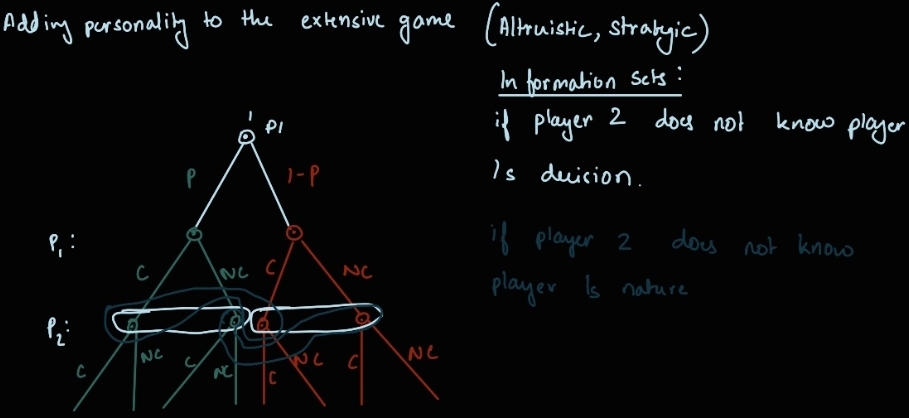 Adding personality to the extensive game (Altruistic, strategic)
Information sets:
if player 2 does not know player
1s decision.
if player 2 does not know
player 1s nature
1 P1
P 1-P
P1: C NC C NC
P2:
C NC C NC C NC C NC